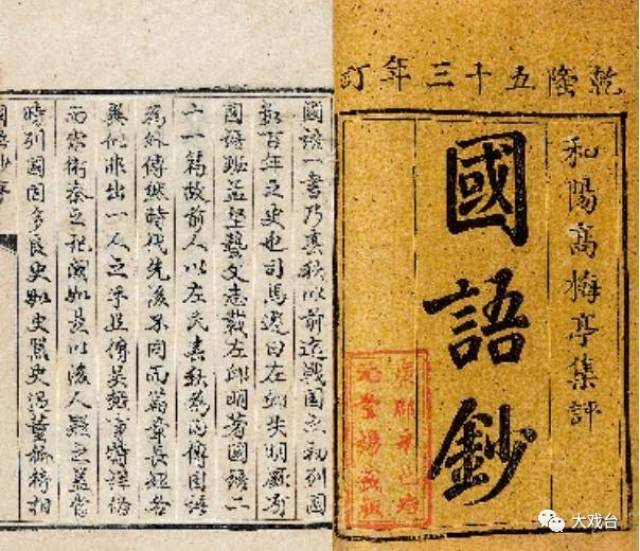 乾隆五十三年訂
和陽高梅亭集評
國語鈔
國語一書乃春秋以前迄戰國之初列國
數百年之史也司馬遷曰左邱失明厥有
國語班孟堅藝文志載左邱明著國語二
十一篇故前人以左氏春秋為內傳國語
為外傳然時代先後不同而篇章長短若
非出一人之手且傳吳越事特詳
而宋衛秦之記闕如是以後人疑之蓋當
時列國固多良史如史黯史董狐倚相
國語鈔序
大戏台